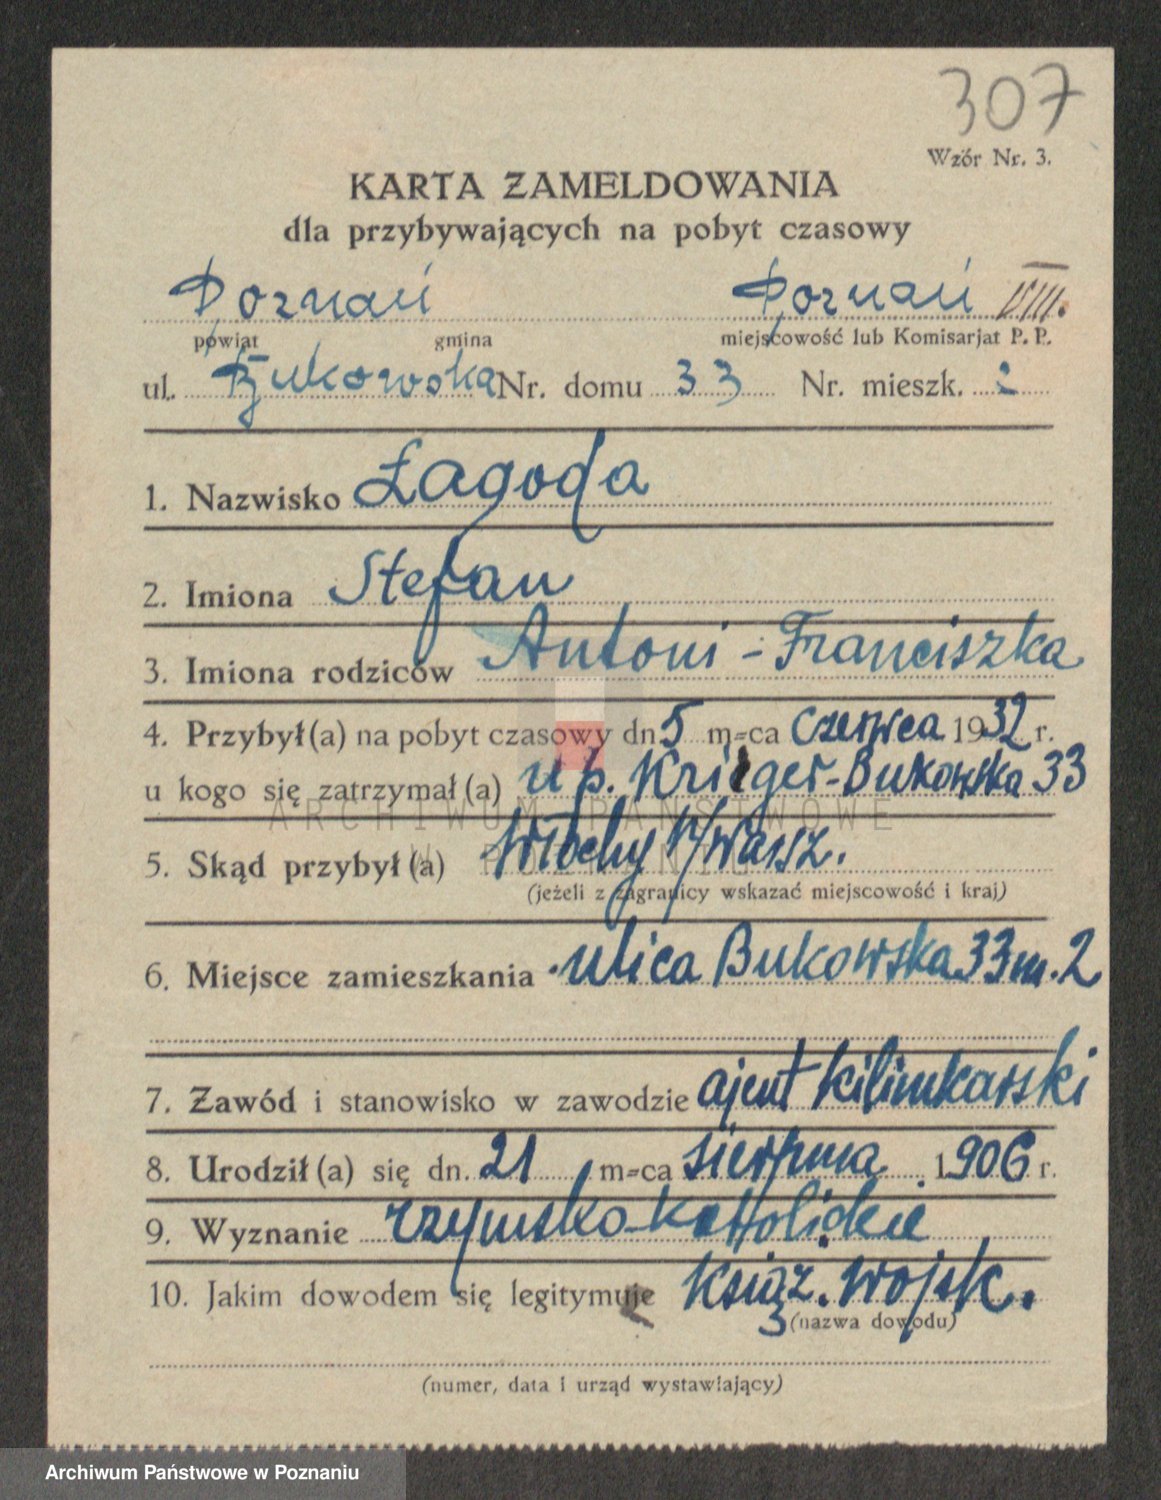 307
Wzór Nr. 3.
KARTA ZAMELDOWANIA
dla przybywających na pobyt czasowy
Poznań Poznań VIII.
powiat gmina miejscowość lub Komisarjat P. P.
ul. Bukowska Nr. domu 33 Nr. mieszk. 2
1. Nazwisko Łagoda
2. Imiona Stefan
3. Imiona rodziców Antoni - Franciszka
4. Przybył(a) na pobyt czasowy dn 5 m-ca czerwca 1932 r.
u kogo się zatrzymał(a) u p. Krieger-Bukowska 33
ARCHIWUM PAŃSTWOWE
5. Skąd przybył(a) Włochy k/Warsz.
W POZNANIU
(jeżeli z zagranicy wskazać miejscowość i kraj)
6. Miejsce zamieszkania ulica Bukowska 33 m. 2
7. Zawód i stanowisko w zawodzie ajent kilimkarski
8. Urodził(a) się dn. 21 m-ca sierpnia 1906 r.
9. Wyznanie rzymsko-katolickie
10. Jakim dowodem się legitymuje książ. wojsk.
(nazwa dowodu)
(numer, data i urząd wystawiający)
Archiwum Państwowe w Poznaniu